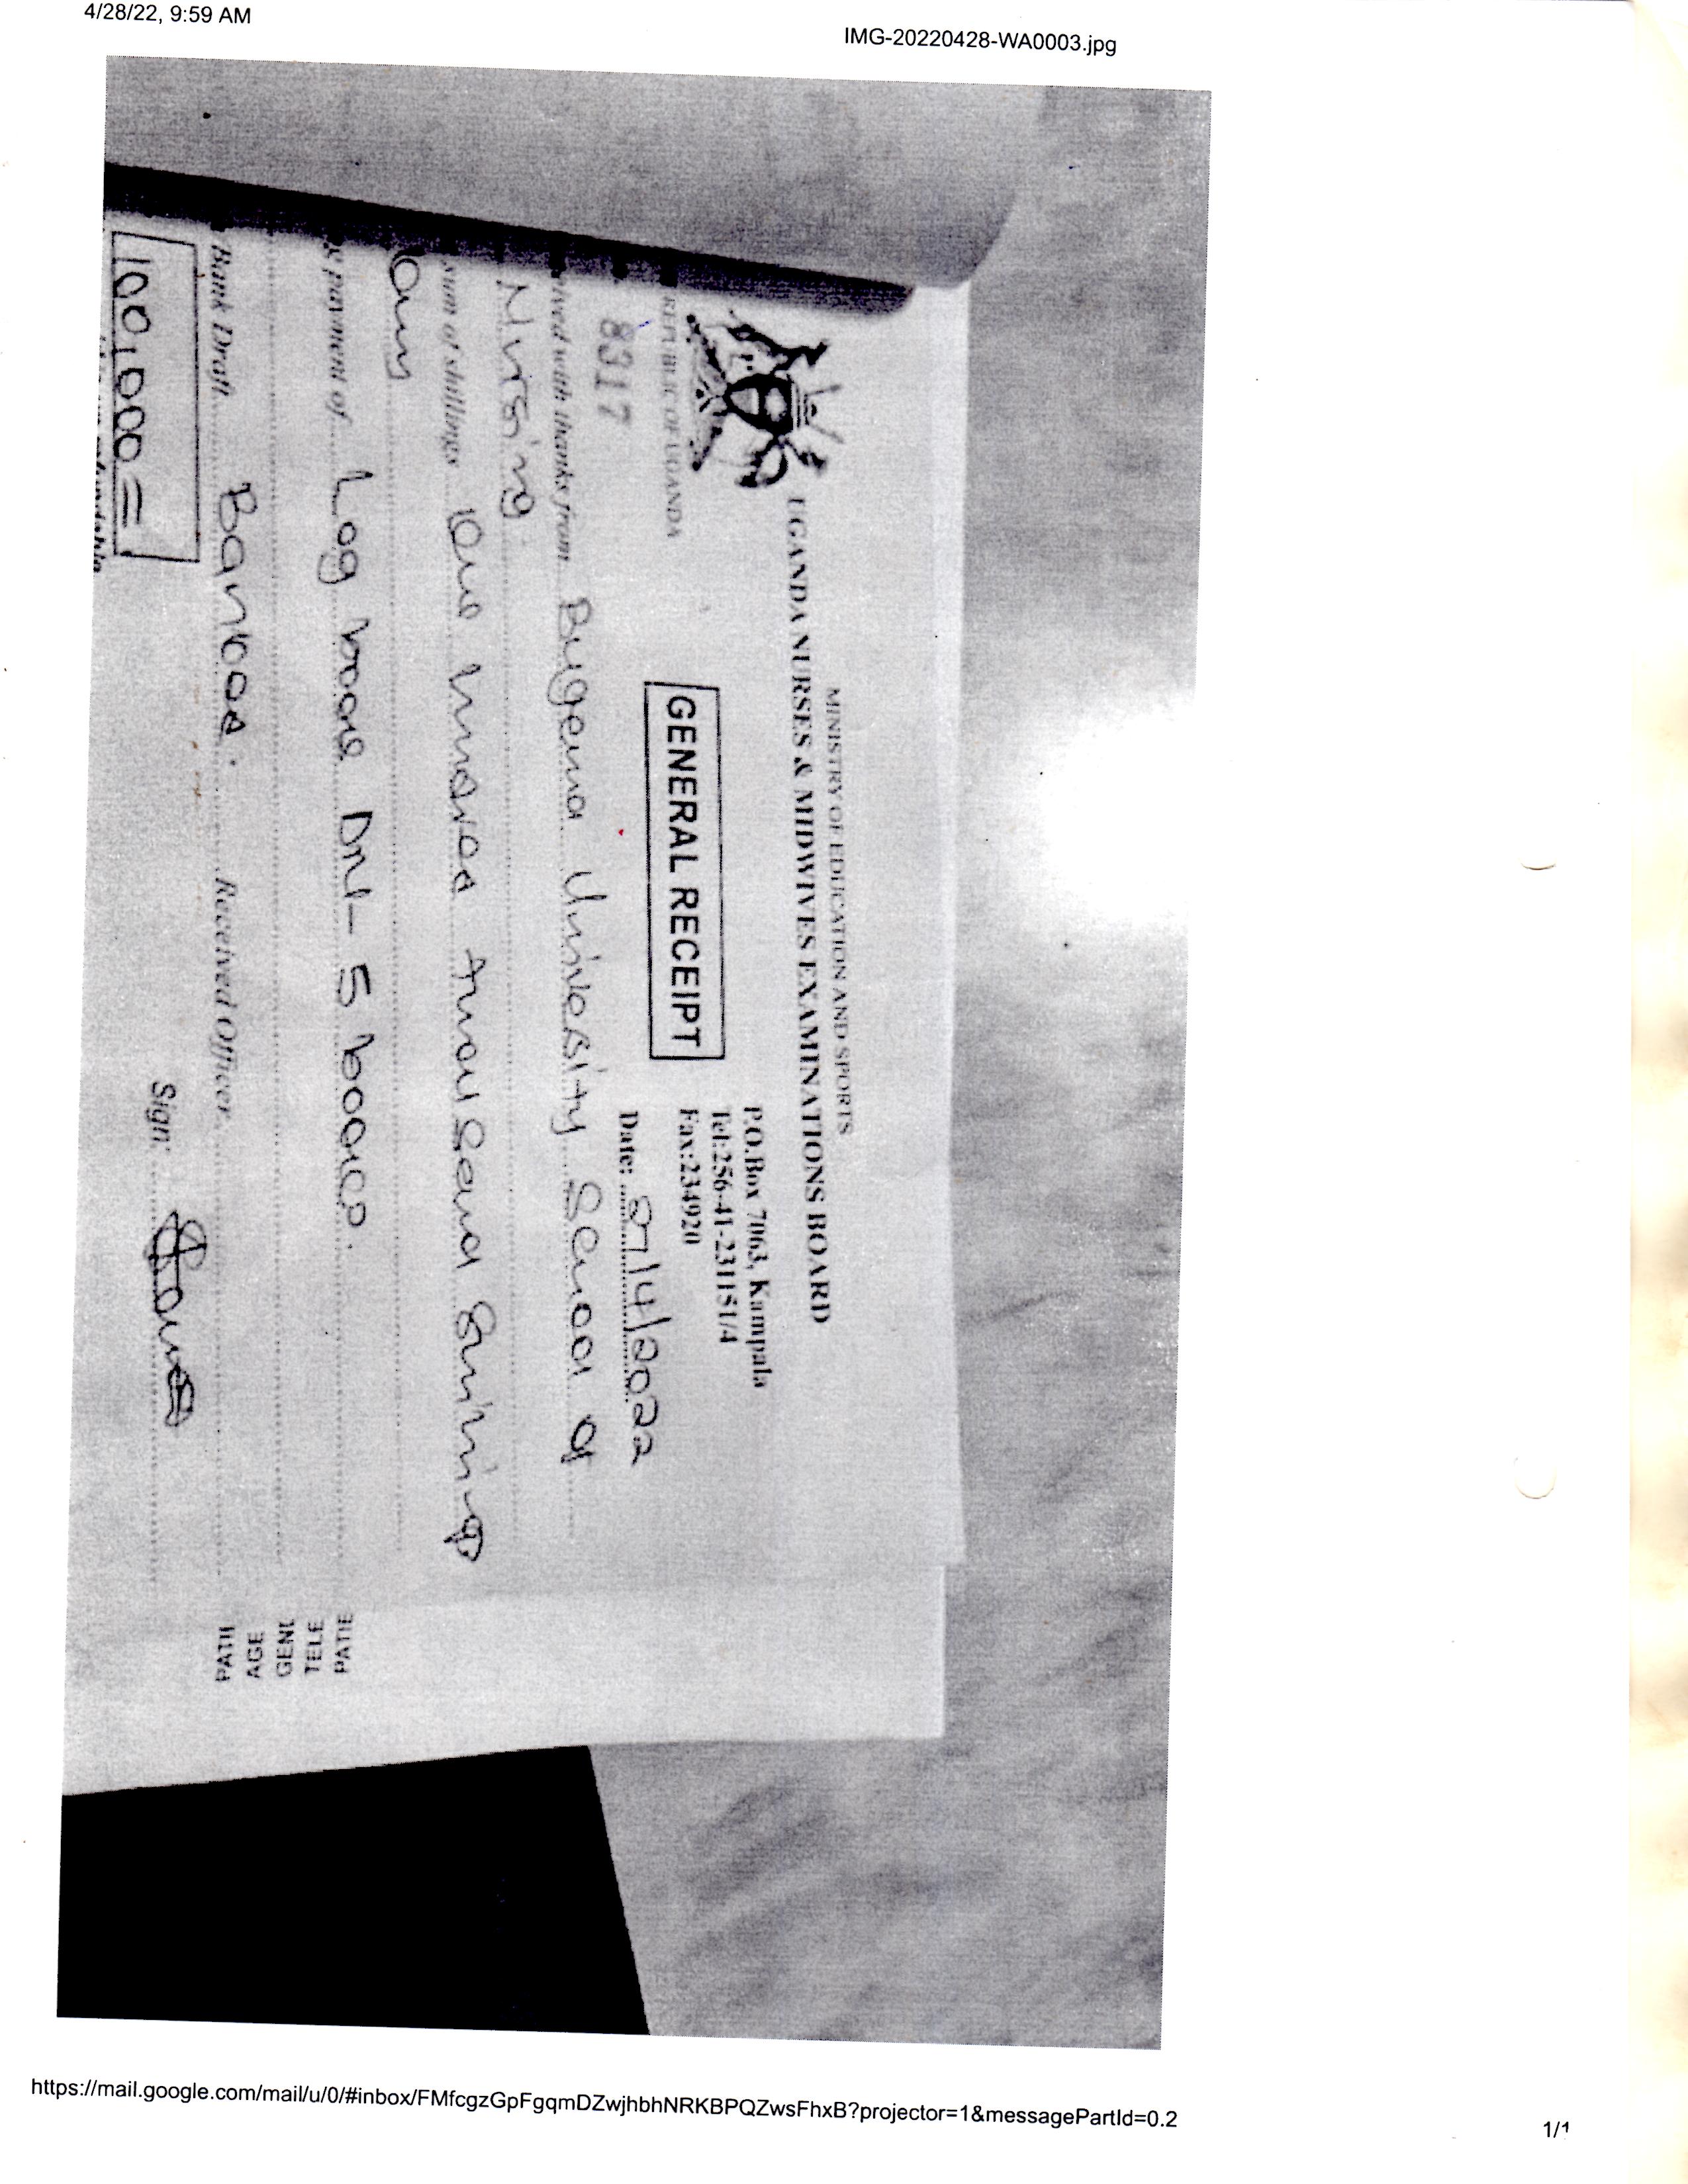 4/28/22, 9:59 AM
IMG-20220428-WA0003.jpg
MINISTRY OF EDUCATION AND SPORTS
UGANDA NURSES & MIDWIVES EXAMINATIONS BOARD
P.O.Box 7063, Kampala
Tel:256-41-231151/4
Fax:234920
REPUBLIC OF UGANDA
GENERAL RECEIPT
8317
Date: 27/4/2022
with thanks from Bugema University School of
Nursing
sum of shillings One hundred thousand shillings
only
payment of Log book DNE- 5 books.
Bank Draft Banked. Received Officer
100,000=
Sign
PATIE
TELE
GENE
AGE
PATH
https://mail.google.com/mail/u/0/#inbox/FMfcgzGpFgqmDZwjhbhNRKBPQZwsFhxB?projector=1&messagePartId=0.2
1/1